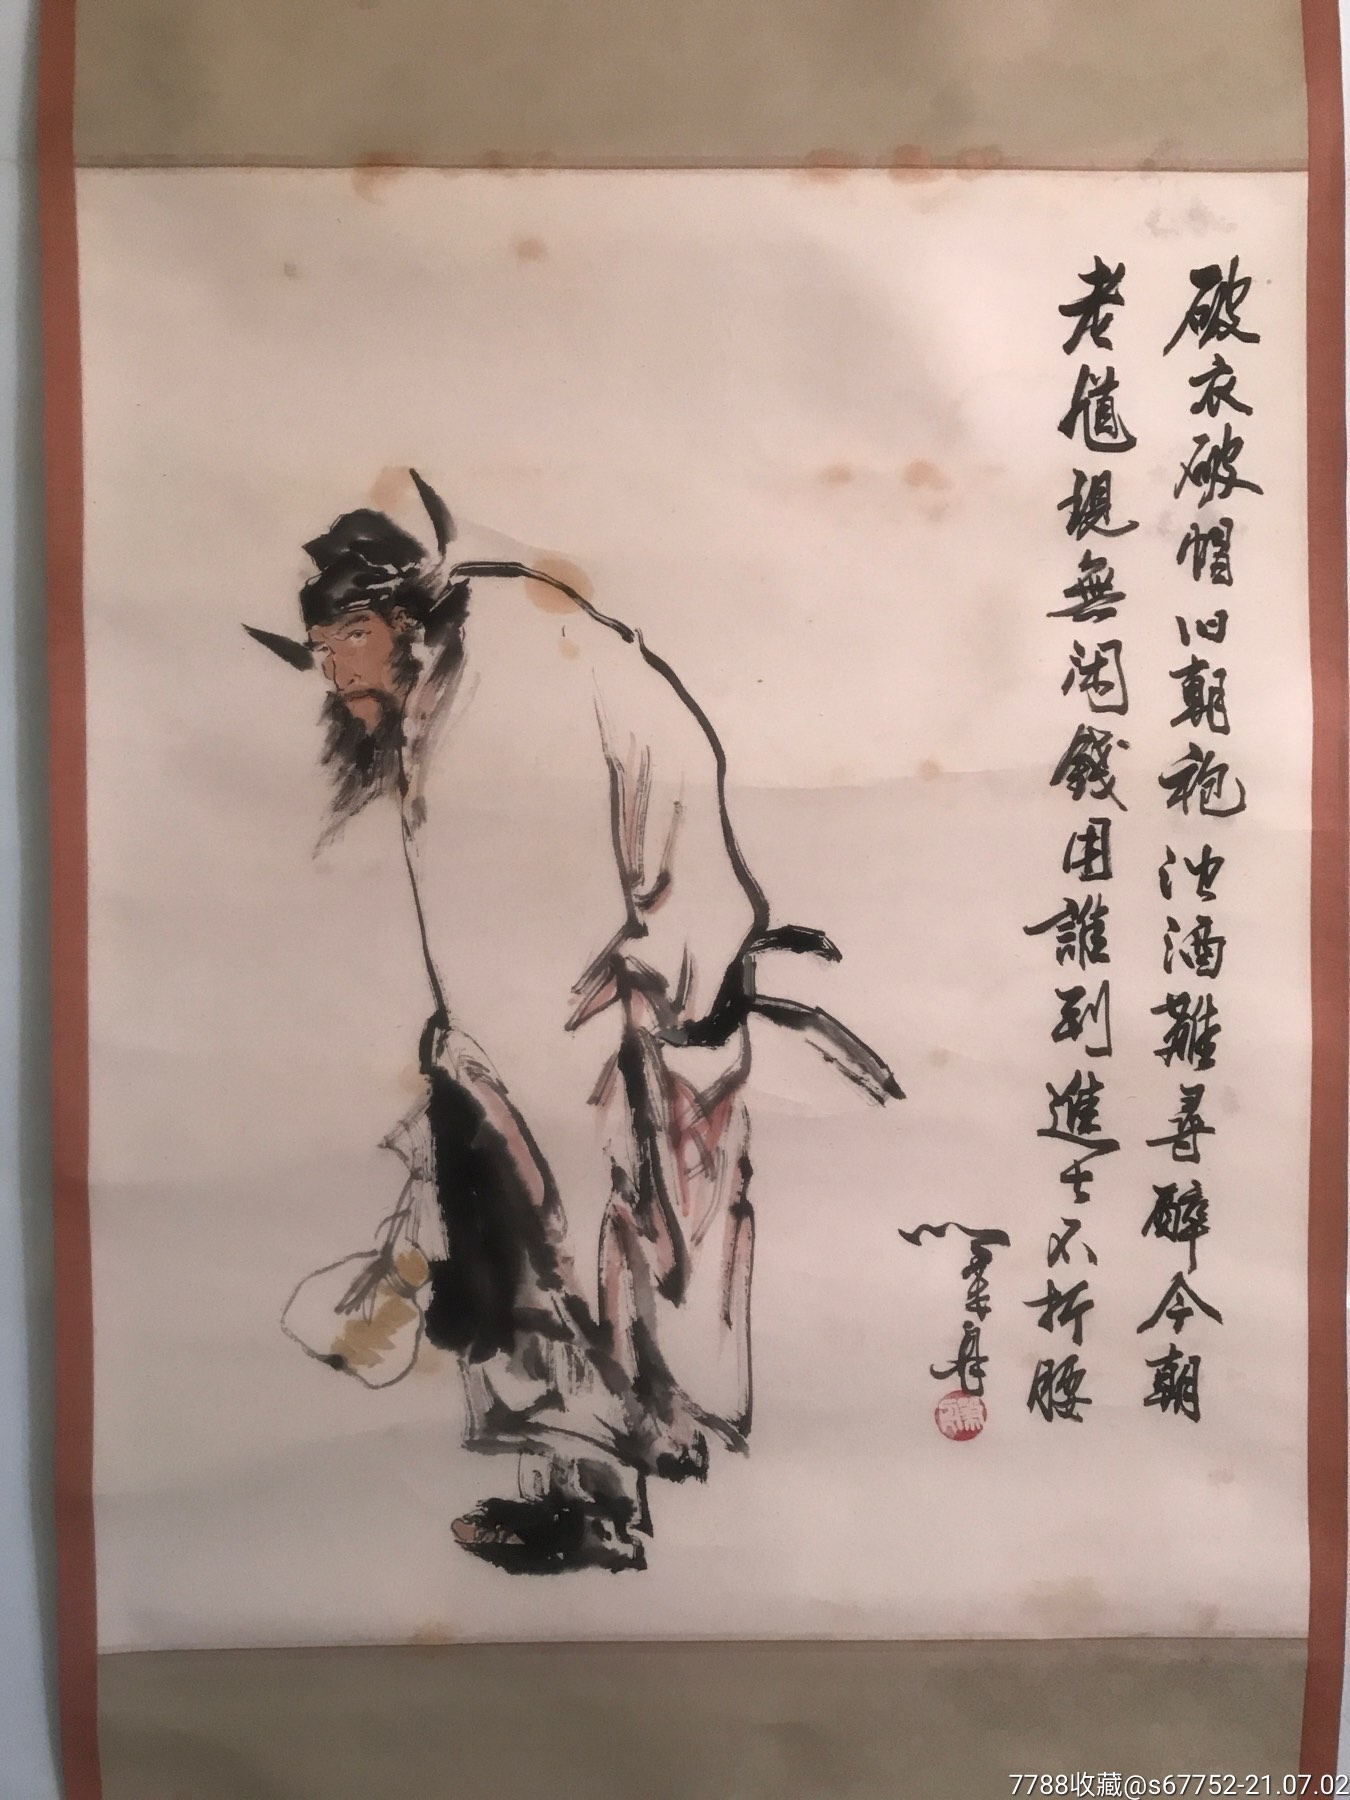 破衣破帽旧朝袍浊酒難尋醉今朝
老馗現無闲錢用誰到進士不折腰
7788收藏@s67752-21.07.02